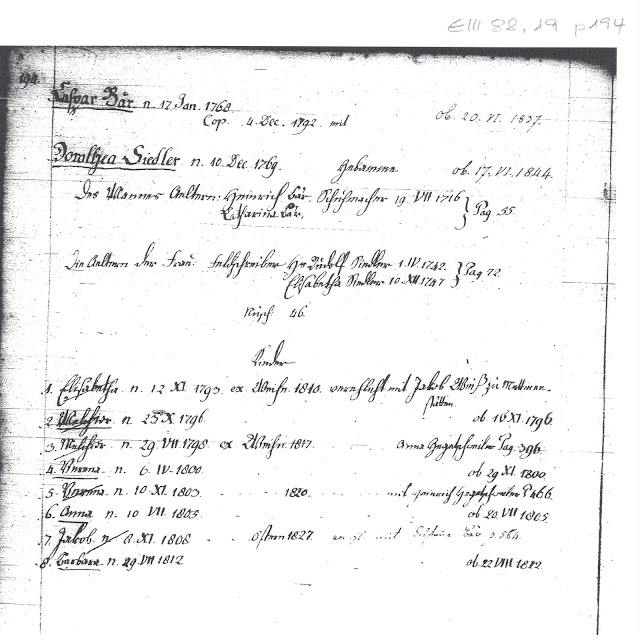 EIII 82.19 p194
194.
Caspar Bär n. 17 Jan. 1768. ob. 20. VI. 1837.
Cop. 4. Dec. 1792. mit
Dorothea Siedler n. 10. Dec. 1769. Hebamme ob. 17. VI. 1844.
Des Mannes Aeltern: Heinrich Bär, Schuhmacher 19. VII 1716
Catharina Bär, } Pag. 55.
Die Aeltern der Frau: Feldschreiber Hs Rudolf Siedler 1. IV. 1742. } Pag 72
Elisabetha Siedler 10. XII 1747
46.
Kinder
1. Elisabetha n. 12 XI. 1793. ex Weihn. 1810. verehlicht mit Jakob Weiß zu Mettmen-
stätten.
2. Melchior n. 25 X 1796. ob 16 XI 1796.
3. Melchior n. 29 VII 1798 ex Weihn. 1817. Anna Pag. 396.
4. Verena n. 6. IV. 1800. ob 29 XI. 1800.
5. Verena n. 10. XI. 1803. 1820. mit Heinrich P 466.
6. Anna n. 10 VII. 1805. ob 20 VII 1805.
7. Jakob n. 8. XI. 1808 Ostern 1827. mit Bär p. 564.
8. Barbara n. 29 VII 1812 ob 22 VIII 1812.